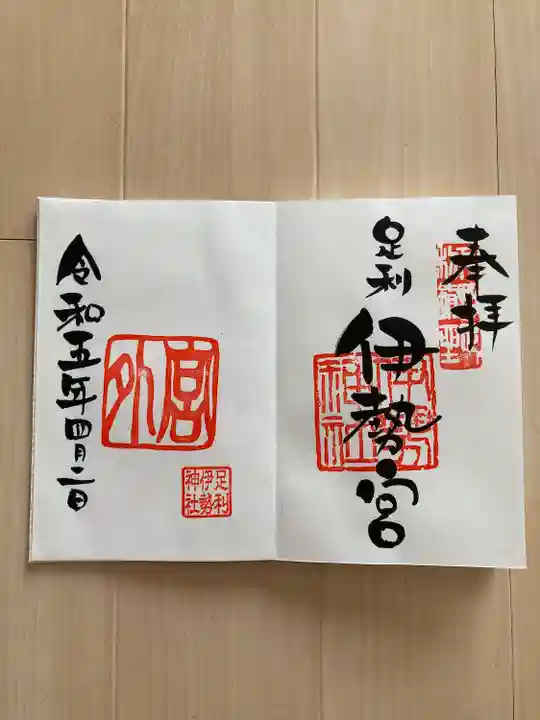 奉拝
足利
伊勢宮
伊勢
神社
外宮
足利
伊勢
神社
令和五年四月二日